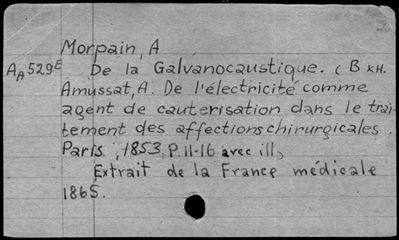 Morpain, A
AA 529E De la Galvanocaustique. ( В кн.
Amussat, A. De l'électricité comme
agent de cauterisation dans le trai-
tement des affections chirurgicales.
Paris, 1853, P. 11-16 avec ill,
Extrait de la France médicale
1865.